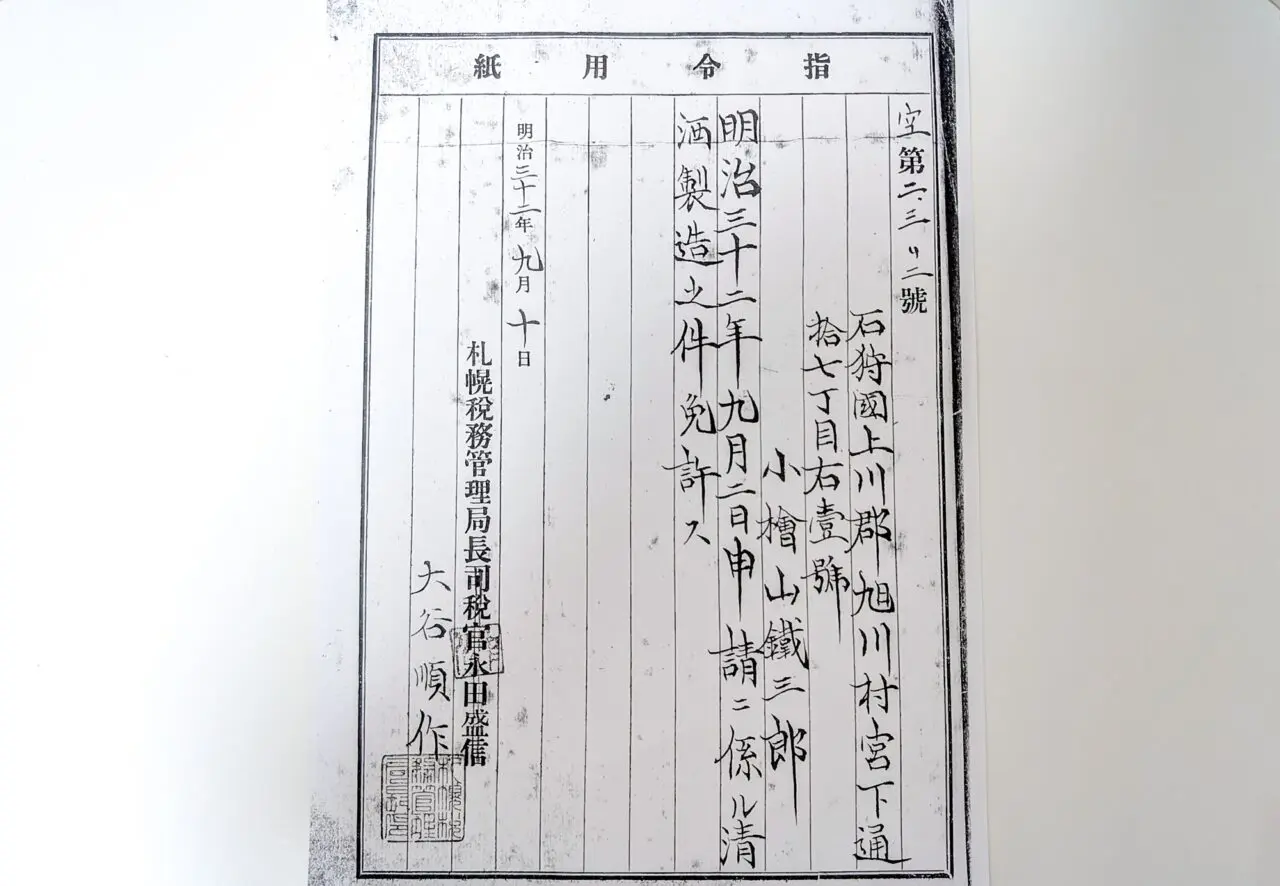 指令用紙
空第二、三〃二號
石狩國上川郡旭川村宮下通
拾七丁目右壹號
小檜山鐵三郎
明治三十二年九月二日申請ニ係ル清
酒製造之件免許ス
明治三十二年九月十日
札幌稅務管理局長司稅官永田盛信
大谷順作